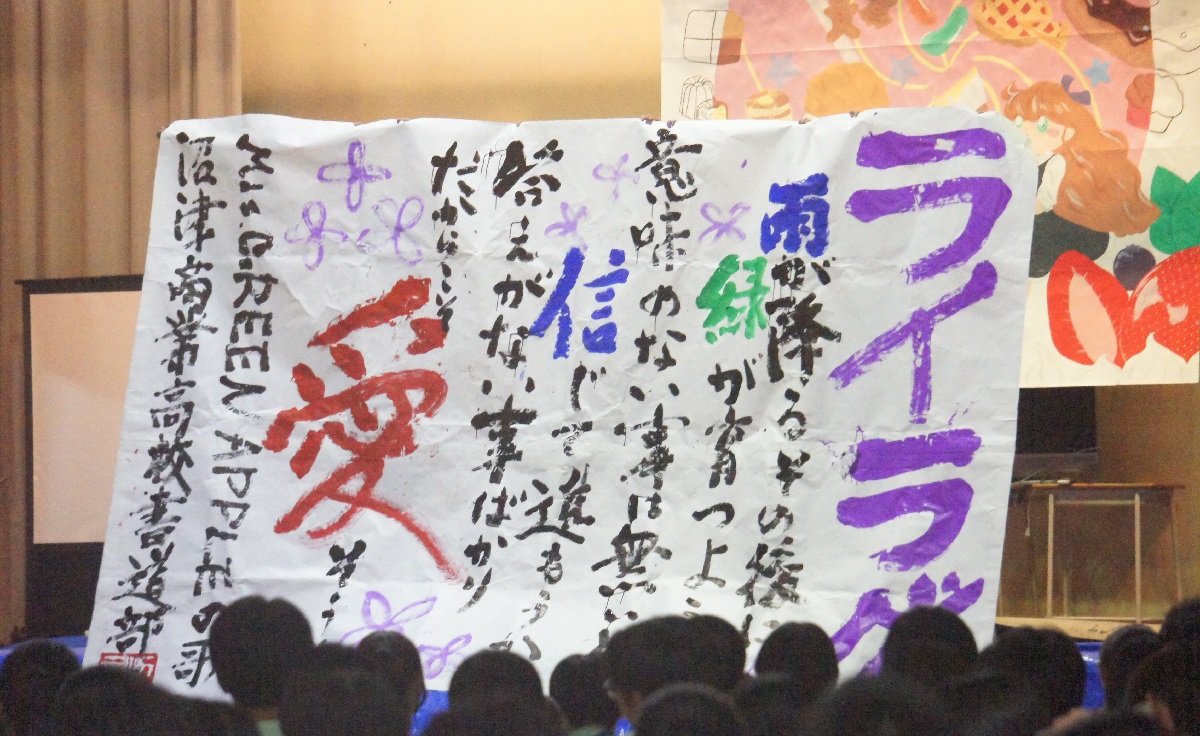 ライラック
雨が降るその後に
緑が育つよう
意味のない事は無いと
信じて進もうか
答えがない事ばかり
だからこそ
愛そう
Mrs.GREEN APPLEの歌
沼津商業高校書道部